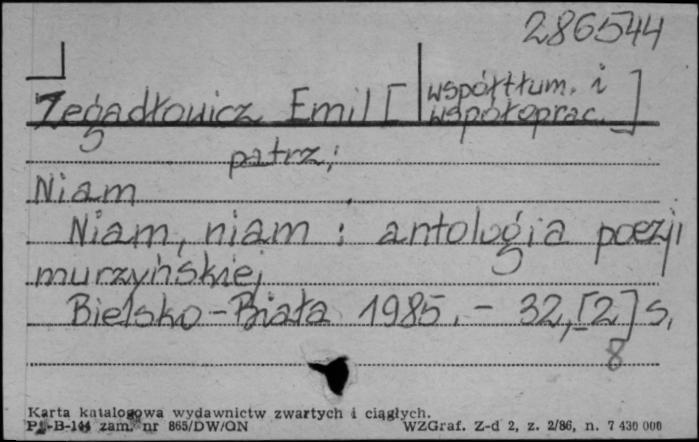 286544
Zegadłowicz Emil [współtłum. i
współoprac.]
patrz;
Niam
Niam, niam : antologia poezji
murzyńskiej
Bielsko-Biała 1985. - 32, [2] s.
8
Karta katalogowa wydawnictw zwartych i ciągłych.
Pu-B-144 zam. nr 865/DW/QN WZGraf. Z-d 2, z. 2/86, n. 7 430 000